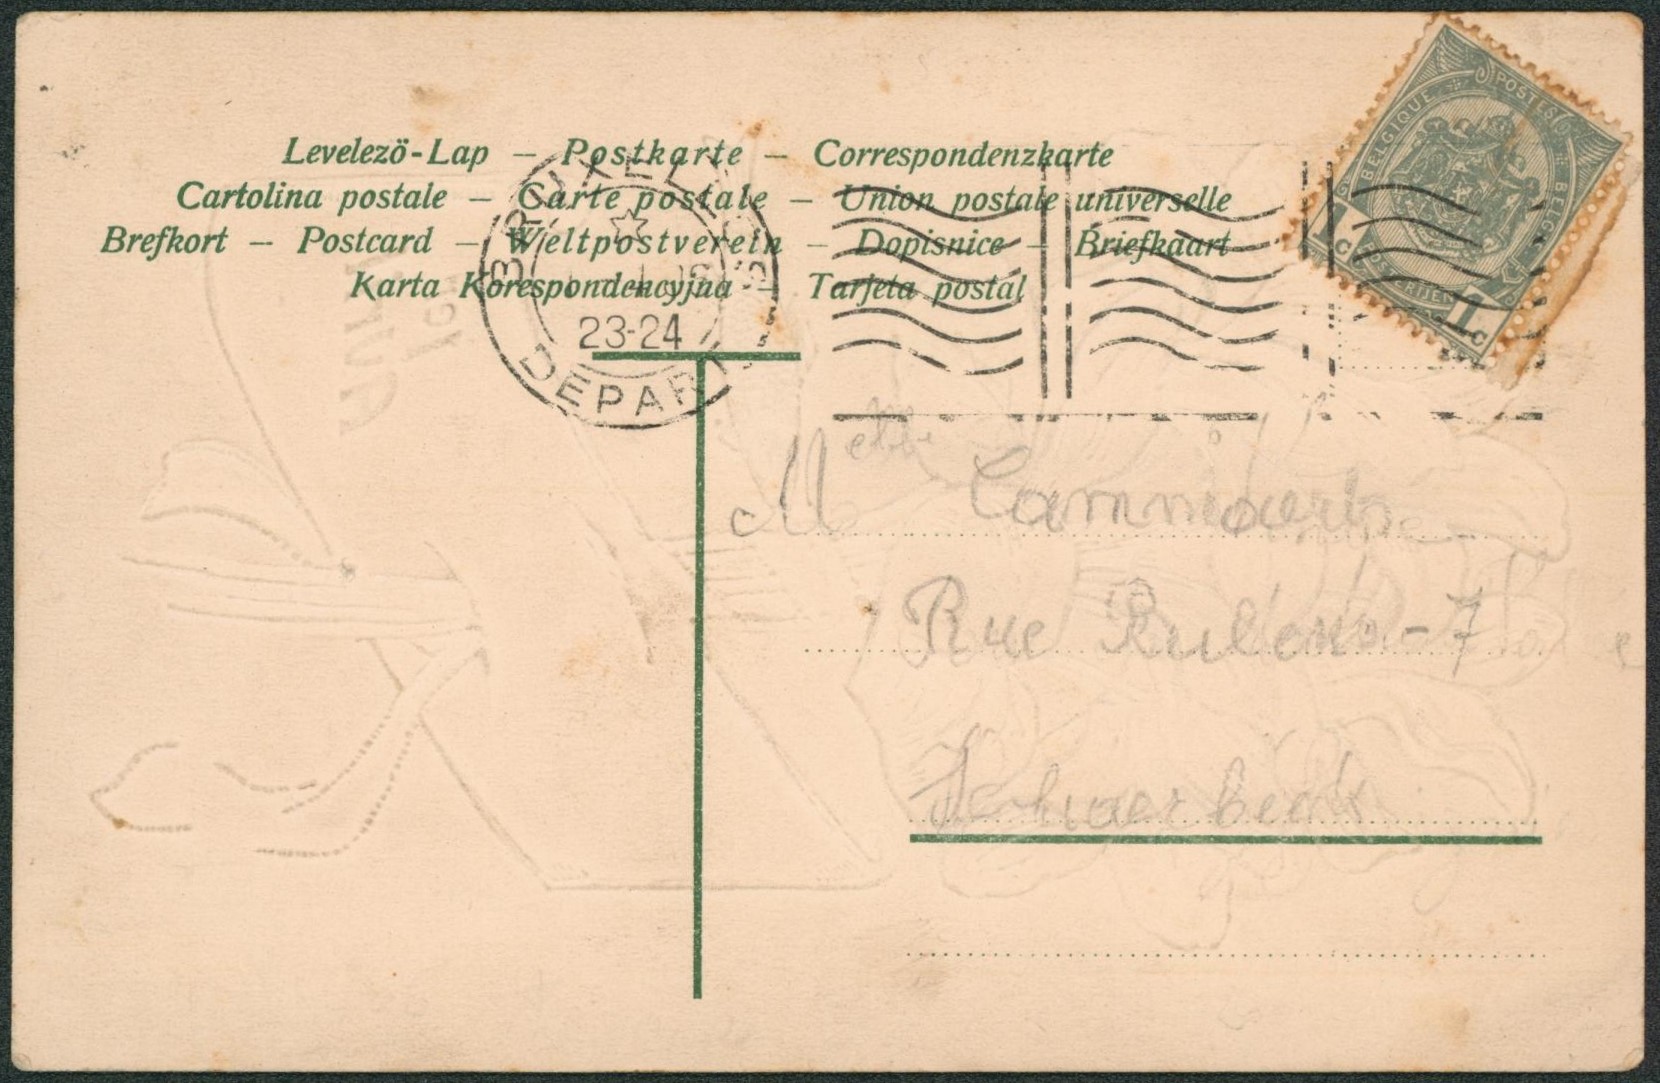 Levelezö-Lap – Postkarte – Correspondenzkarte
Cartolina postale – Carte postale – Union postale universelle
Brefkort – Postcard – Weltpostverein – Dopisnice – Briefkaart
Karta Korespondencyjna – Tarjeta postal
BRUXELLES
23-24
DEPART
BELGIQUE POSTES BELGIË
1c POSTERIJEN 1c
M
Rue Rubens-7
Schaerbeek